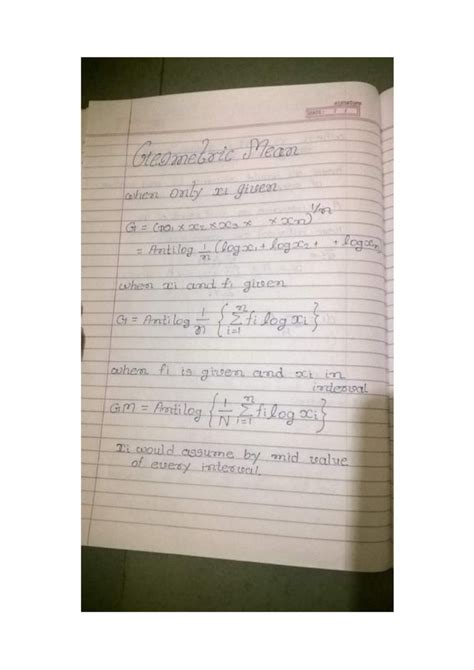 Geometric Mean
when only xi given
G = (x1 × x2 × x3 × × xn)^1/n
= Antilog 1/n (log x1 + log x2 + + log xn
when xi and fi given
G = Antilog 1/n { n Σ i=1 fi log xi }
when fi is given and xi in
interval
GM = Antilog { 1/N n Σ i=1 fi log xi }
xi would assume by mid value
of every interval.